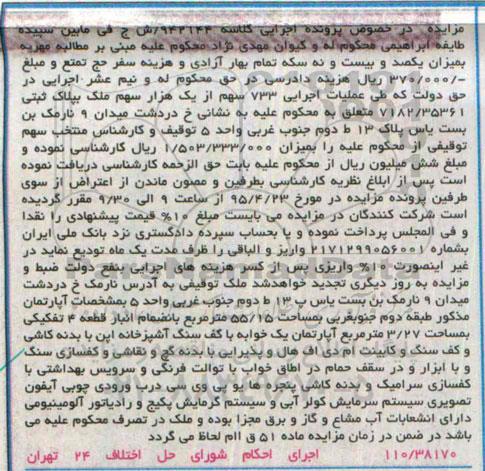 مزایده در خصوص پرونده اجرایی کلاسه ۹۴۳۱۴۴/ش ج فی مابین سپیده
طایفه ابراهیمی محکوم له و کیوان مهدی نژاد محکوم علیه مبنی بر مطالبه مهریه
بمیزان یکصد و بیست و نه سکه تمام بهار آزادی و هزینه سفر حج تمتع و مبلغ
۳۷۰/۰۰۰/- ریال هزینه دادرسی در حق محکوم له و نیم عشر اجرایی در
حق دولت که طی عملیات اجرایی ۷۳۳ سهم از یک هزار سهم ملک بپلاک ثبتی
۷۱۸۲/۳۵۳۶۱ متعلق به محکوم علیه به نشانی خ دردشت میدان ۹ نارمک بن
بست یاس پلاک ۱۳ ط دوم جنوب غربی واحد ۵ توقیف و کارشناس منتخب سهم
توقیفی از محکوم علیه را بمیزان ۱/۵۰۳/۳۳۳/۰۰۰ ریال کارشناسی نموده و
مبلغ شش میلیون ریال از محکوم علیه بابت حق الزحمه کارشناسی دریافت نموده
است پس از ابلاغ نظریه کارشناسی بطرفین و مصون ماندن از اعتراض از سوی
طرفین پرونده مزایده در مورخ ۹۵/۴/۲۳ از ساعت ۹ الی ۹/۳۰ مقرر گردیده
است شرکت کنندگان در مزایده می بایست مبلغ ۱۰% قیمت پیشنهادی را نقدا
و فی المجلس پرداخت نموده و یا بحساب سپرده دادگستری نزد بانک ملی ایران
بشماره ۲۱۷۱۲۹۹۰۵۶۰۰۱ واریز و الباقی را ظرف مدت یک ماه تودیع نماید در
غیر اینصورت ۱۰% واریزی پس از کسر هزینه های اجرایی بنفع دولت ضبط و
مزایده به روز دیگری تجدید خواهدشد ملک توقیفی به آدرس نارمک خ دردشت
میدان ۹ نارمک بن بست یاس پ ۱۳ ط دوم جنوب غربی واحد ۵ بمشخصات آپارتمان
مذکور طبقه دوم جنوبغربی بمساحت ۵۵/۱۵ مترمربع بانضمام انبار قطعه ۴ تفکیکی
بمساحت ۳/۲۷ مترمربع آپارتمان یک خوابه با کف سنگ آشپزخانه اپن با بدنه کاشی
و کف سنگ و کابینت ام دی اف هال و پذیرایی با بدنه گچ و نقاشی و کفسازی سنگ
و با ابزار و در سقف حمام در اطاق خواب با توالت فرنگی و سرویس بهداشتی با
کفسازی سرامیک و بدنه کاشی پنجره ها یو پی وی سی درب ورودی چوبی آیفون
تصویری سیستم سرمایش کولر آبی و سیستم گرمایش پکیج و رادیاتور آلومینیومی
دارای انشعابات آب مشاع و گاز و برق مجزا بوده و ملک در تصرف محکوم علیه می
باشد در ضمن در زمان مزایده ماده ۵۱ ق اام لحاظ می گردد
۱۱۰/۳۸۱۷۰ اجرای احکام شورای حل اختلاف ۲۴ تهران